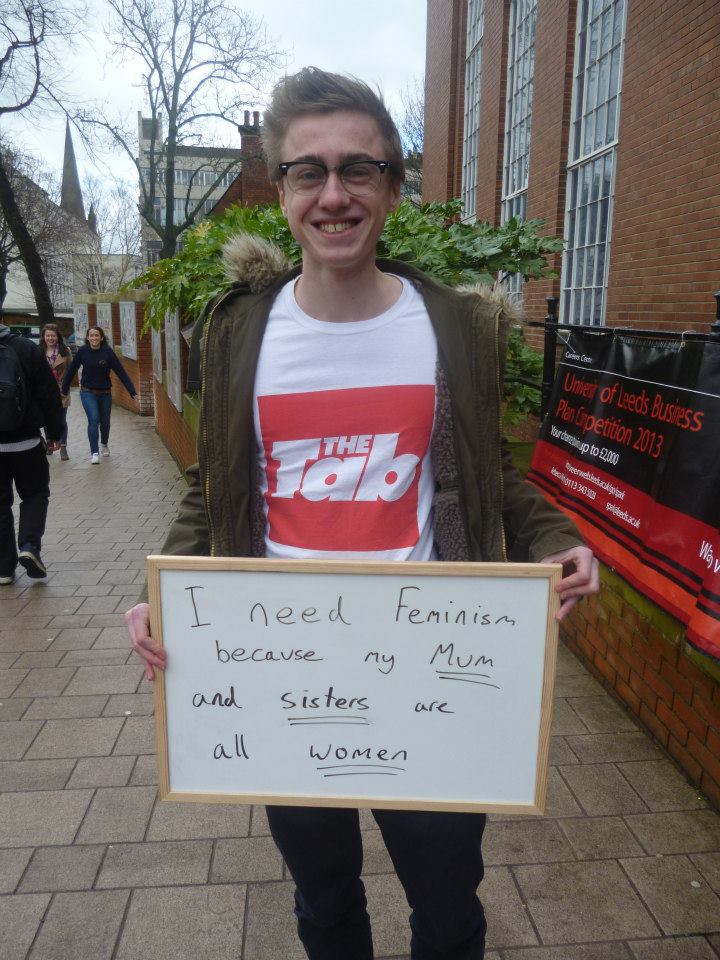 THE
Tab
I need Feminism
because my Mum
and sisters are
all women
Careers Centre
University of Leeds Business
Plan Competition 2013
up to £2,000